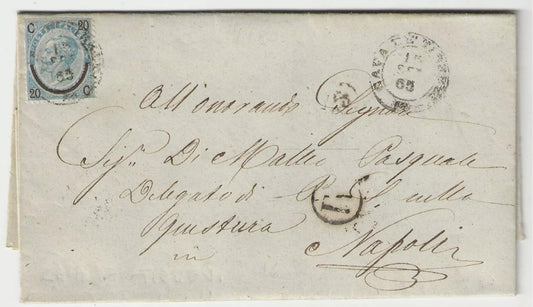 C 20
20 C
65
5
65
All'onorando Signore
Sig.r Di Matteo Pasquale
Delegato di P. S. nella
questura
in Napoli